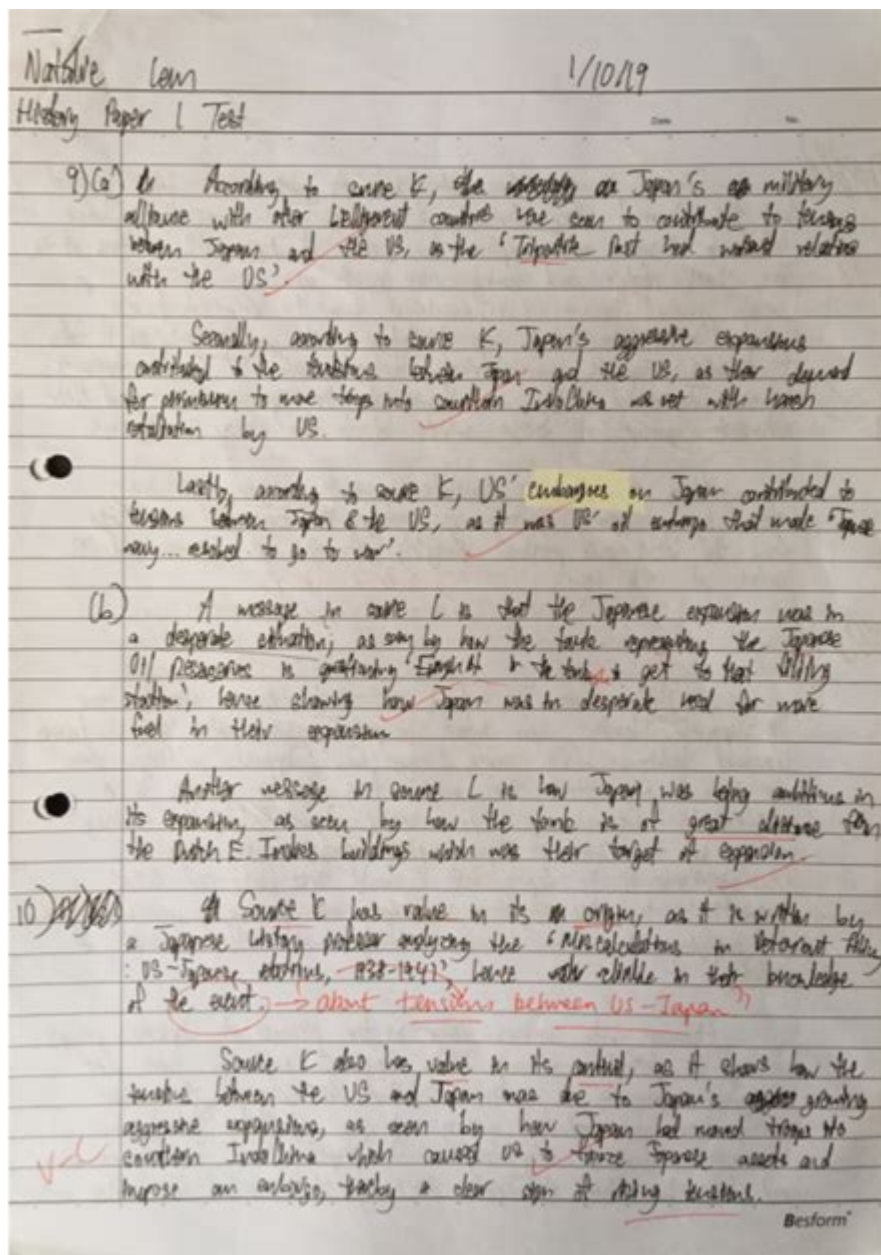 Natalie Lem 1/10/19
History Paper 1 Test
Date No.
9)(a) According to source K, the Japan's military
alliance with other belligerent countries were seen to contribute to tensions
between Japan and the US, as the 'Tripartite Pact had worsened relations
with the US'.
Secondly, according to source K, Japan's aggressive expansions
contributed to the tensions between Japan and the US, as their demand
for permission to move troops into southern IndoChina was met with harsh
retaliation by US.
Lastly, according to source K, US' embargoes on Japan contributed to
tensions between Japan & the US, as it was US' oil embargo that made "Japanese
navy... resolved to go to war".
(b) A message in source L is that the Japanese expansion was in
a desperate situation, as seen by how the tank representing the Japanese
Oil Reserves is 'Enough in the tank to get to that filling
station', hence showing how Japan was in desperate need for more
fuel in their expansion
Another message in source L is how Japan was being ambitious in
its expansion, as seen by how the tank is of great distance from
the Dutch E. Indies buildings which was their target of expansion.
10) Source K has value in its origin, as it is written by
a Japanese history professor analyzing the 'Miscalculations in Deterrent Policy
: US-Japanese relations, 1938-1941', hence reliable in their knowledge
of the event. → about tensions between US-Japan"
Source K also has value in its content, as it shows how the
tensions between the US and Japan was due to Japan's growing
aggressive expansions, as seen by how Japan had moved troops into
southern IndoChina which caused US to freeze Japanese assets and
V-C impose an embargo, thereby a clear sign of rising tensions.
Besform